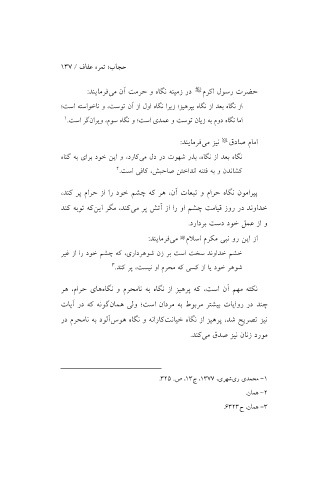 حجاب؛ ثمره عفاف / ۱۳۷
حضرت رسول اکرم ﷺ در زمینه نگاه و حرمت آن می‌فرمایند:
از نگاه بعد از نگاه بپرهیز؛ زیرا نگاه اول از آن توست، و ناخواسته است؛
اما نگاه دوم به زیان توست و عمدی است؛ و نگاه سوم، ویران‌گر است.۱
امام صادق نیز می‌فرمایند:
نگاه بعد از نگاه، بذر شهوت در دل می‌کارد، و این خود برای به گناه
کشاندن و به فتنه انداختن صاحبش، کافی است.۲
پیرامون نگاه حرام و تبعات آن، هر که چشم خود را از حرام پر کند،
خداوند در روز قیامت چشم او را از آتش پر می‌کند، مگر این‌که توبه کند
و از عمل خود دست بردارد.
از این رو نبی مکرم اسلام می‌فرمایند:
خشم خداوند سخت است بر زن شوهرداری، که چشم خود را از غیر
شوهر خود یا از کسی که محرم او نیست، پر کند.۳
نکته مهم آن است، که پرهیز از نگاه به نامحرم و نگاه‌های حرام، هر
چند در روایات بیشتر مربوط به مردان است؛ ولی همان‌گونه که در آیات
نیز تصریح شد، پرهیز از نگاه خیانت‌کارانه و نگاه هوس‌آلود به نامحرم در
مورد زنان نیز صدق می‌کند.
۱- محمدی ری‌شهری، ۱۳۷۷، ج۱۳، ص. ۳۲۵.
۲- همان.
۳- همان، ح۶۳۲۳.